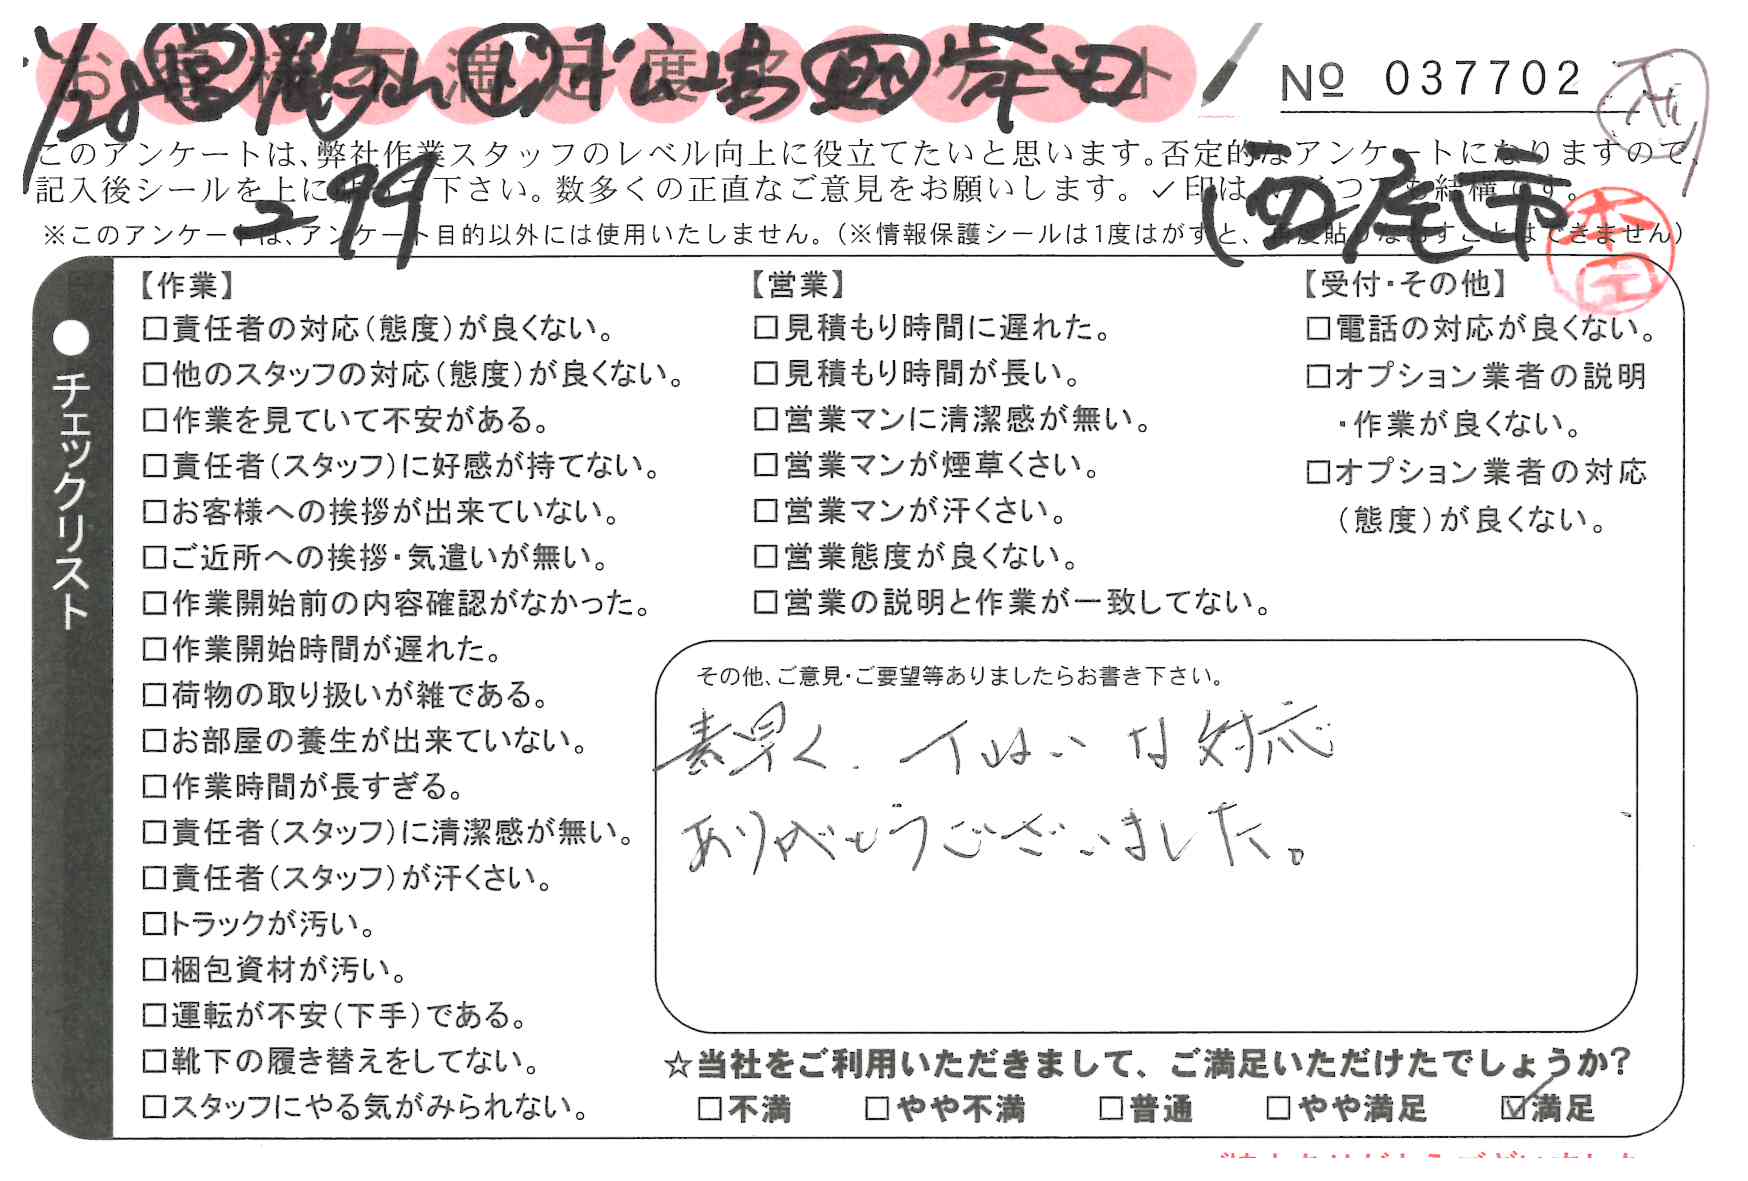 お客様不満足度アンケート
1/28 営 駒山 作 松島 助 柴田
№ 037702
このアンケートは、弊社作業スタッフのレベル向上に役立てたいと思います。否定的なアンケートになりますので、
記入後シールを上に貼って下さい。数多くの正直なご意見をお願いします。✓印はいくつでも結構です。
2-99
(西尾市
※このアンケートは、アンケート目的以外には使用いたしません。（※情報保護シールは1度はがすと、再度貼りなおすことはできません）
●チェックリスト
【作業】
□責任者の対応（態度）が良くない。
□他のスタッフの対応（態度）が良くない。
□作業を見ていて不安がある。
□責任者（スタッフ）に好感が持てない。
□お客様への挨拶が出来ていない。
□ご近所への挨拶・気遣いが無い。
□作業開始前の内容確認がなかった。
□作業開始時間が遅れた。
□荷物の取り扱いが雑である。
□お部屋の養生が出来ていない。
□作業時間が長すぎる。
□責任者（スタッフ）に清潔感が無い。
□責任者（スタッフ）が汗くさい。
□トラックが汚い。
□梱包資材が汚い。
□運転が不安（下手）である。
□靴下の履き替えをしてない。
□スタッフにやる気がみられない。
【営業】
□見積もり時間に遅れた。
□見積もり時間が長い。
□営業マンに清潔感が無い。
□営業マンが煙草くさい。
□営業マンが汗くさい。
□営業態度が良くない。
□営業の説明と作業が一致してない。
【受付・その他】
□電話の対応が良くない。
□オプション業者の説明
・作業が良くない。
□オプション業者の対応
（態度）が良くない。
その他、ご意見・ご要望等ありましたらお書き下さい。
素早く、ていねいな対応
ありがとうございました。
☆当社をご利用いただきまして、ご満足いただけたでしょうか？
□不満 □やや不満 □普通 □やや満足 ☑満足